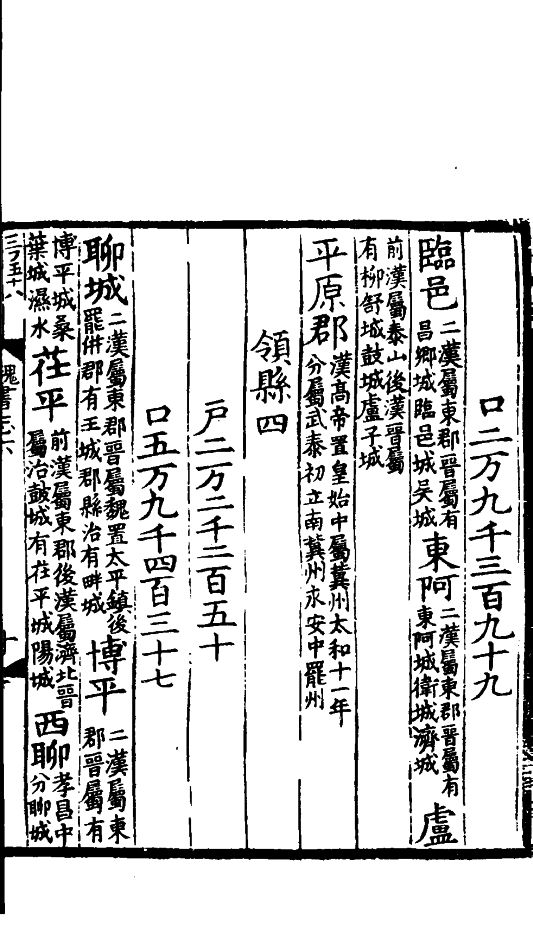 口二万九千三百九十九
臨邑二漢屬東郡晉屬有昌鄉城臨邑城吳城東阿二漢屬東郡晉屬有東阿城衛城濟城盧
前漢屬泰山後漢晉屬有柳舒城鼓城盧子城
平原郡漢高帝置皇始中屬冀州太和十一年分屬武泰初立南冀州永安中罷州
領縣四
戶二万二千二百五十
口五万九千四百三十七
聊城二漢屬東郡晉屬魏置太平鎮後罷併郡有王城郡縣治有畔城博平二漢屬東郡晉屬有
博平城桑葉城濕水茌平前漢屬東郡後漢屬濟北晉屬治鼓城有茌平城陽城西聊孝昌中分聊城
魏書志六